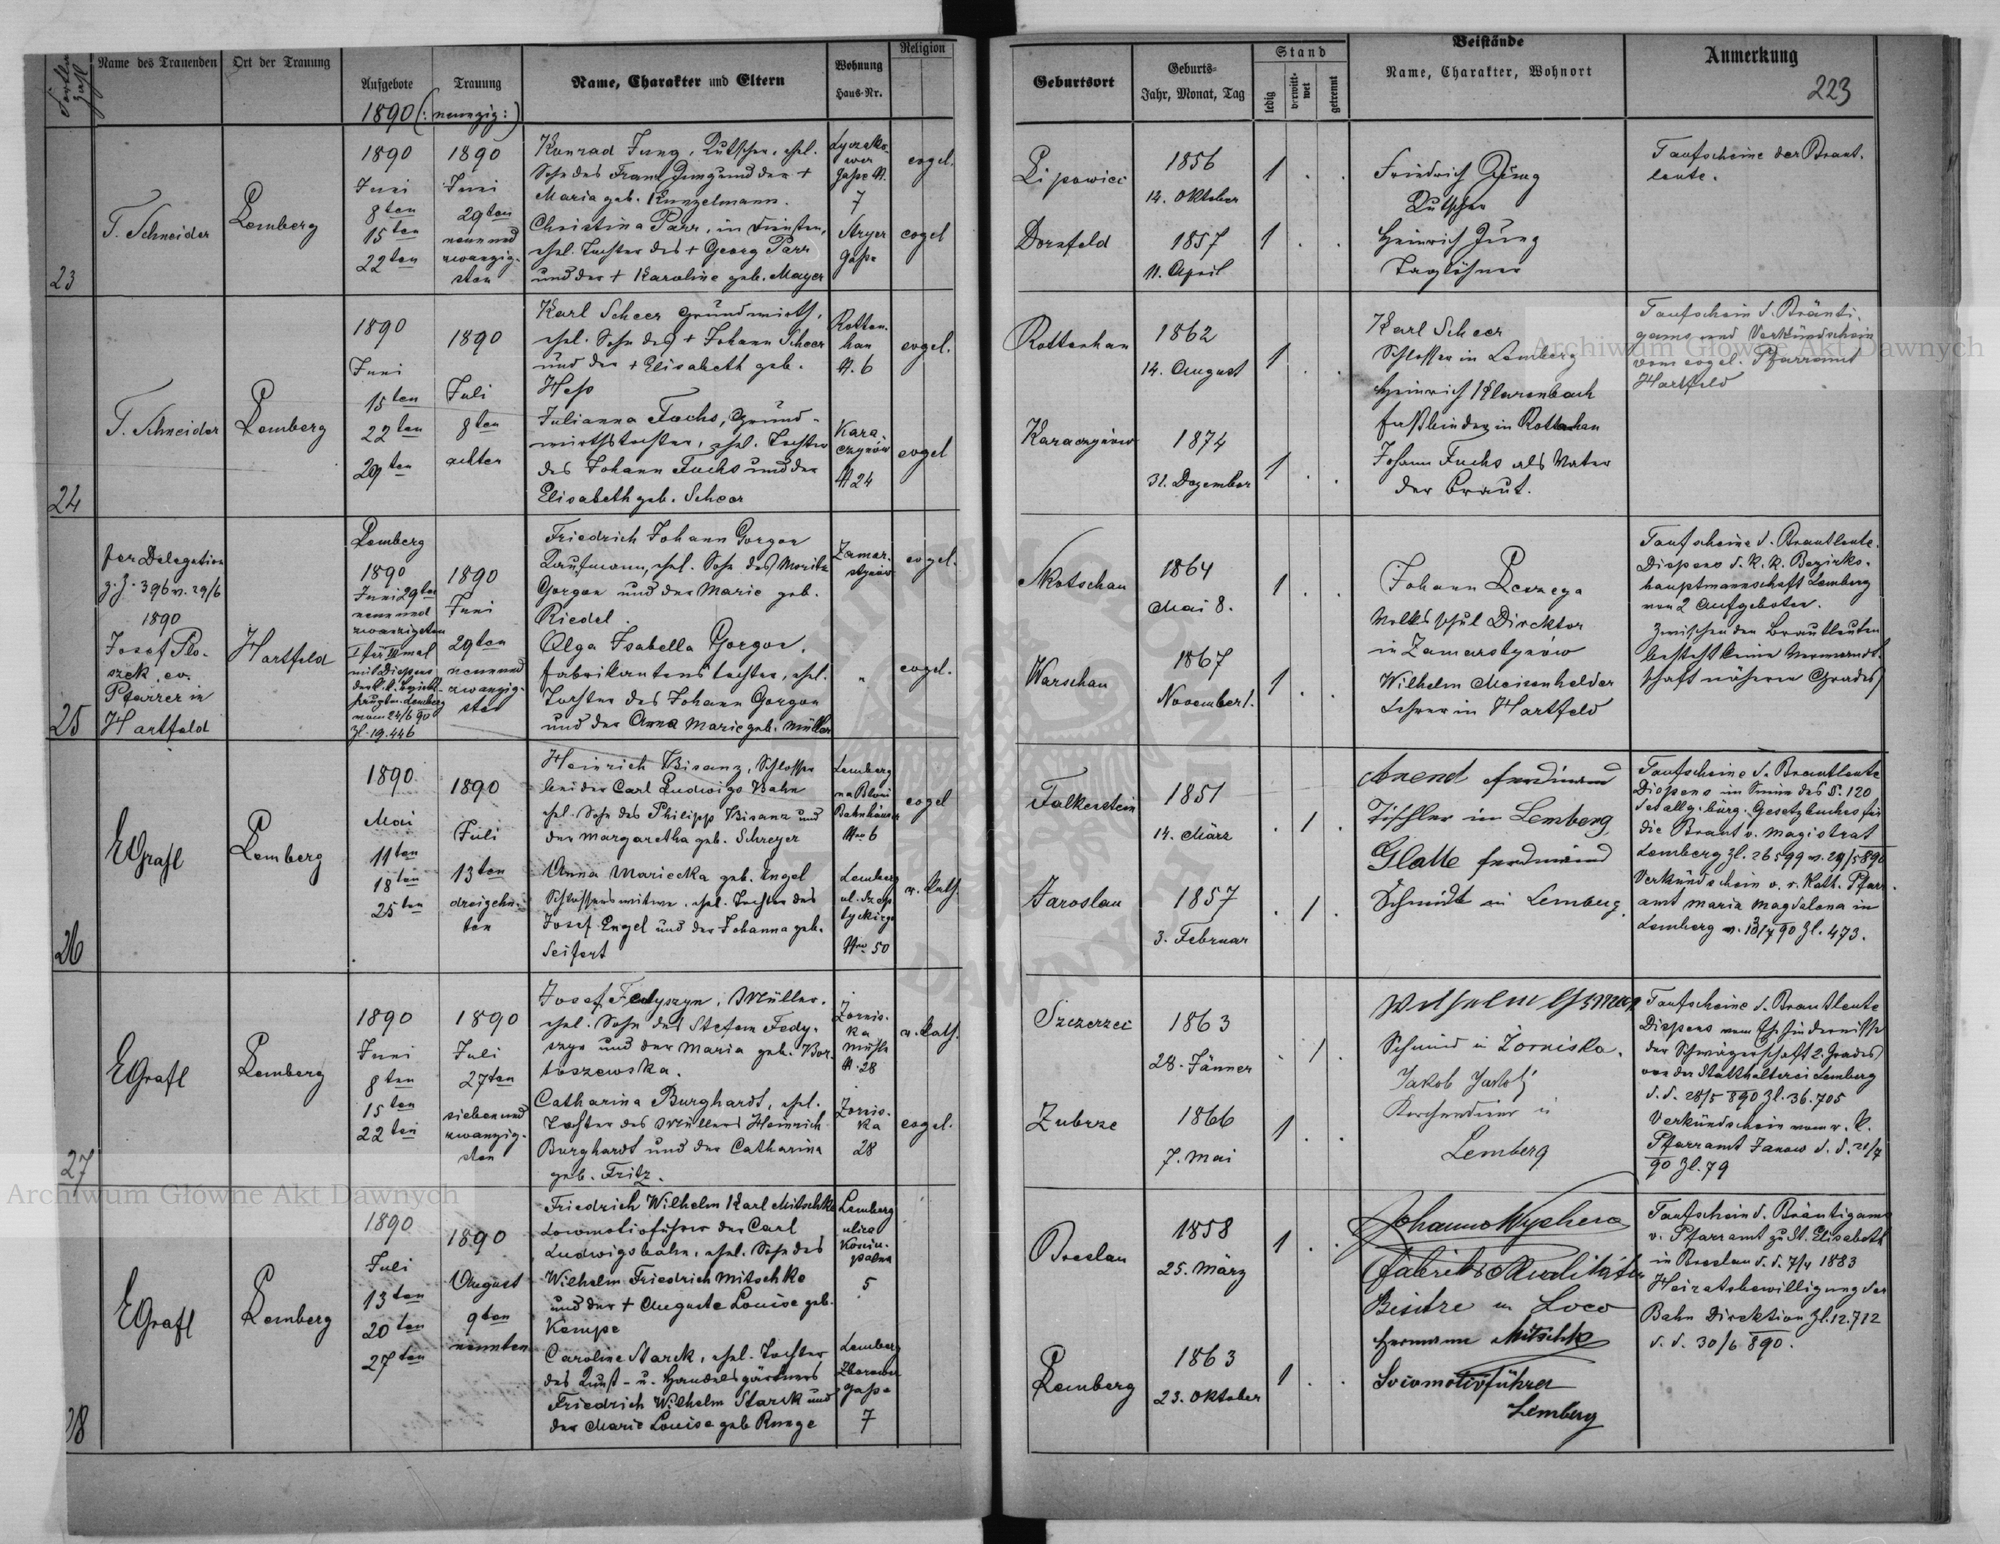 Name des Trauenden
Ort der Trauung
Aufgebote
Trauung
Name, Charakter und Eltern
Wohnung
Haus-Nr.
Religion
1890 (: neunzig :)
23
T. Schneider
Lemberg
1890
Juni
8ten
15ten
22ten
1890
Juni
29ten
neunund
zwanzig-
sten
Konrad Jung, Kutscher, ehel.
Sohn des Franz Jung und der +
Maria geb. Kunzelmann.
7
evgel.
Christina Parr, in Diensten,
ehel. Tochter des + Georg Parr
und der + Karoline geb. Mayer
Stryer
Gasse
evgel
24
T. Schneider
Lemberg
1890
Juni
15ten
22ten
29ten
1890
Juli
8ten
achten
Karl Scheer Grundwirth,
ehel. Sohn des + Johann Scheer
und der + Elisabeth geb.
Hess
Rotten-
han
N. 6
evgel.
Julianna Fuchs, Grund-
wirthstochter, ehel. Tochter
des Johann Fuchs und der
Elisabeth geb. Scheer
Kara-
czynów
N 24
evgel
25
per Delegation
z. Z. 396 v. 29/6
1890
Josef Plo-
szek, ev.
Pfarrer in
Hartfeld
Hartfeld
Lemberg
1890
Juni 29ten
neunund
zwanzigsten
I für III mal
mit Dispens
der k.k. Bezirks-
hauptm. Lemberg
vom 24/6 90
Zl. 19.446
1890
Juni
29ten
neunund
zwanzig-
sten
Friedrich Johann Gorgon
Kaufmann, ehel. Sohn des Moritz
Gorgon und der Marie geb.
Riedel.
Zamar-
stynów
evgel.
Olga Isabella Gorgon,
Fabrikantenstochter, ehel.
Tochter des Johann Gorgon
und der Anna Marie geb. Müller
"
evgel.
26
E Grafl
Lemberg
1890
Mai
11ten
18ten
25ten
1890
Juli
13ten
dreizehn-
ten
Heinrich Bisanz, Schlosser
bei der Carl Ludwigs Bahn
ehel. Sohn des Philipp Bisanz und
der Margaretha geb. Schreyer
Lemberg
na Błoni
Bahnhäuser
Nro 6
evgel
Anna Mariecka geb. Engel
Schlosserswitwe, ehel. Tochter des
Josef Engel und der Johanna geb.
Seifert
Lemberg
Nro 50
r. kath.
27
E Grafl
Lemberg
1890
Juni
8ten
15ten
22ten
1890
Juli
27ten
siebenund
zwanzig-
sten
Josef Fedyszyn, Müller,
ehel. Sohn des Stefan Fedy-
szyn und der Maria geb. Bar-
toszewska.
Zornis-
ka
Mühle
N. 28
r. kath.
Catharina Burghardt, ehel.
Tochter des Müllers Heinrich
Burghardt und der Catharina
geb. Fritz.
Zornis-
ka
28
evgel.
28
E Grafl
Lemberg
1890
Juli
13ten
20ten
27ten
1890
August
9ten
neunten
Friedrich Wilhelm Karl Mitschke
Locomotivführer der Carl
Ludwigsbahn, ehel. Sohn des
Wilhelm Friedrich Mitschke
und der + Auguste Louise geb.
Kempe
Lemberg
ulica
5
Caroline Starck, ehel. Tochter
des Kunst- u. Handelsgärtners
Friedrich Wilhelm Starck und
der Marie Louise geb. Runge
Lemberg
Gasse
7
Geburtsort
Geburts-
Jahr, Monat, Tag
Stand
ledig
verwitt-
wet
getrennt
Beistände
Name, Charakter, Wohnort
Anmerkung
223
Lipowiec
1856
14. Oktober
1 . .
Friedrich Jung
Kutscher
Taufscheine der Braut-
leute.
Dornfeld
1857
11. April
1 . .
Heinrich Jung
Taglöhner
Rottenhan
1862
14. August
1 . .
Karl Scheer
Schlosser in Lemberg
Heinrich Klarenbach
Fassbinder in Rottenhan
Taufschein d. Bräuti-
gams und Verkündschein
vom evgel. Pfarramt
Hartfeld
Karaczynów
1874
31. Dezember
1 . .
Johann Fuchs als Vater
der Braut.
Skotschau
1864
Mai 8.
1 . .
Johann
Volksschul Direktor
in Zamarstynów
Taufscheine d. Brautleute.
Dispens d. k. k. Bezirks-
hauptmannschaft Lemberg
von 2 Aufgeboten.
Zwischen den Brautleuten
besteht keine Verwandt-
schaft näheren Grades
Warschau
1867
November 1.
1 . .
Wilhelm Meisenhelder
Lehrer in Hartfeld
Falkenstein
1851
14. März
. 1 .
Arend Ferdinand
Tischler in Lemberg
Taufscheine d. Brautleute
Dispens im Sinne des §. 120
des allg. bürg. Gesetzbuches für
die Braut v. Magistrat
Lemberg Zl. 26599 v. 29/5 890
Verkündschein v. r. kath. Pfarr-
amt Maria Magdalena in
Lemberg v. 13/7 90 Zl. 473.
Jaroslau
1857
3. Februar
. 1 .
Glatte Ferdinand
Schmidt in Lemberg.
Szczerzec
1863
28. Jänner
. 1 .
Wilhelm
Schmid in Zorniska.
Taufscheine d. Brautleute
Dispens vom Ehehindernisse
der Schwägerschaft 2. Grades
von der Statthalterei Lemberg
d. d. 28/5 890 Zl. 36.705
Verkündschein vom r. k.
Pfarramt Janow d. d. 21/7
90 Zl. 79
Zubrze
1866
7. Mai
1 . .
Jakob
Kirchendiener in
Lemberg
Breslau
1858
25. März
1 . .
Fabriks & Realitäten
Besitzer in Loco
Taufschein d. Bräutigams
v. Pfarramt zu St. Elisabeth
in Breslau d. d. 7/4 1883
Heiratsbewilligung der
Bahn Direktion Zl. 12.712
d. d. 30/6 890.
Lemberg
1863
23. Oktober
1 . .
Hermann Mitschke
Locomotivführer
Lemberg
Archiwum Główne Akt Dawnych
Archiwum Główne Akt Dawnych